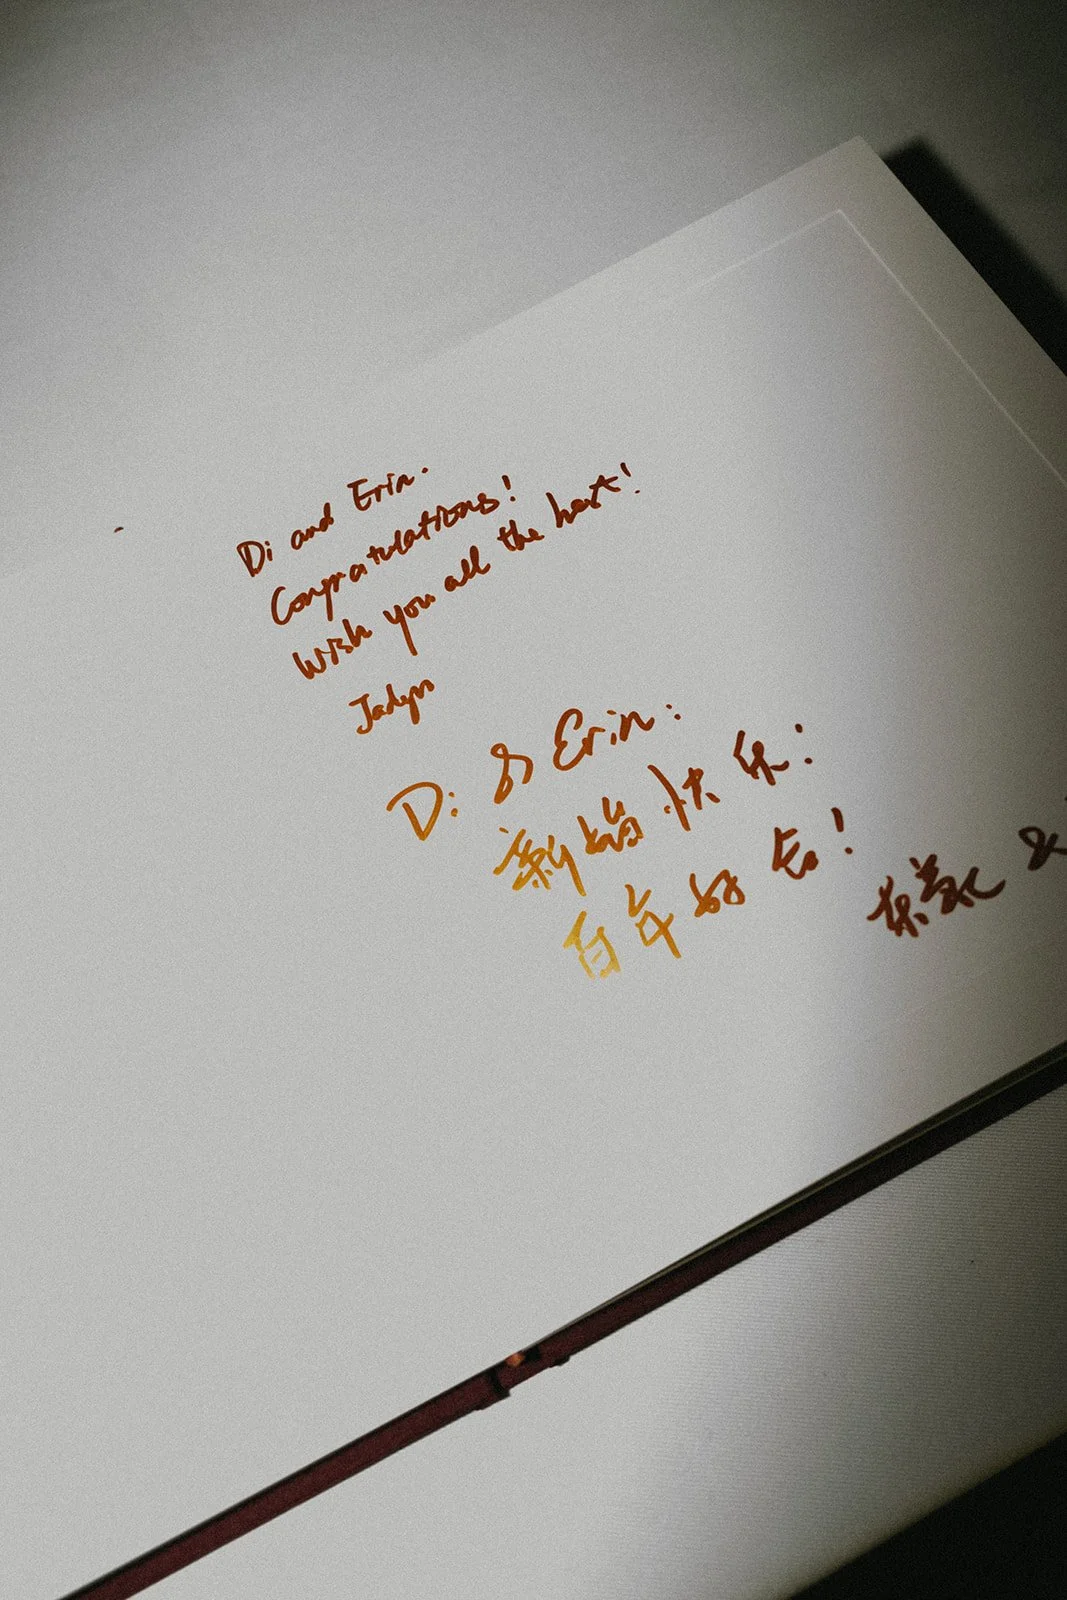 Di and Erin.
Congratulations!
Wish you all the best!
Di & Erin:
新婚快乐!
百年好合!
&